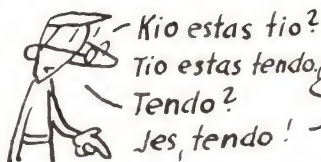 Kio estas tio?
Tio estas tendo.
Tendo?
Jes, tendo!